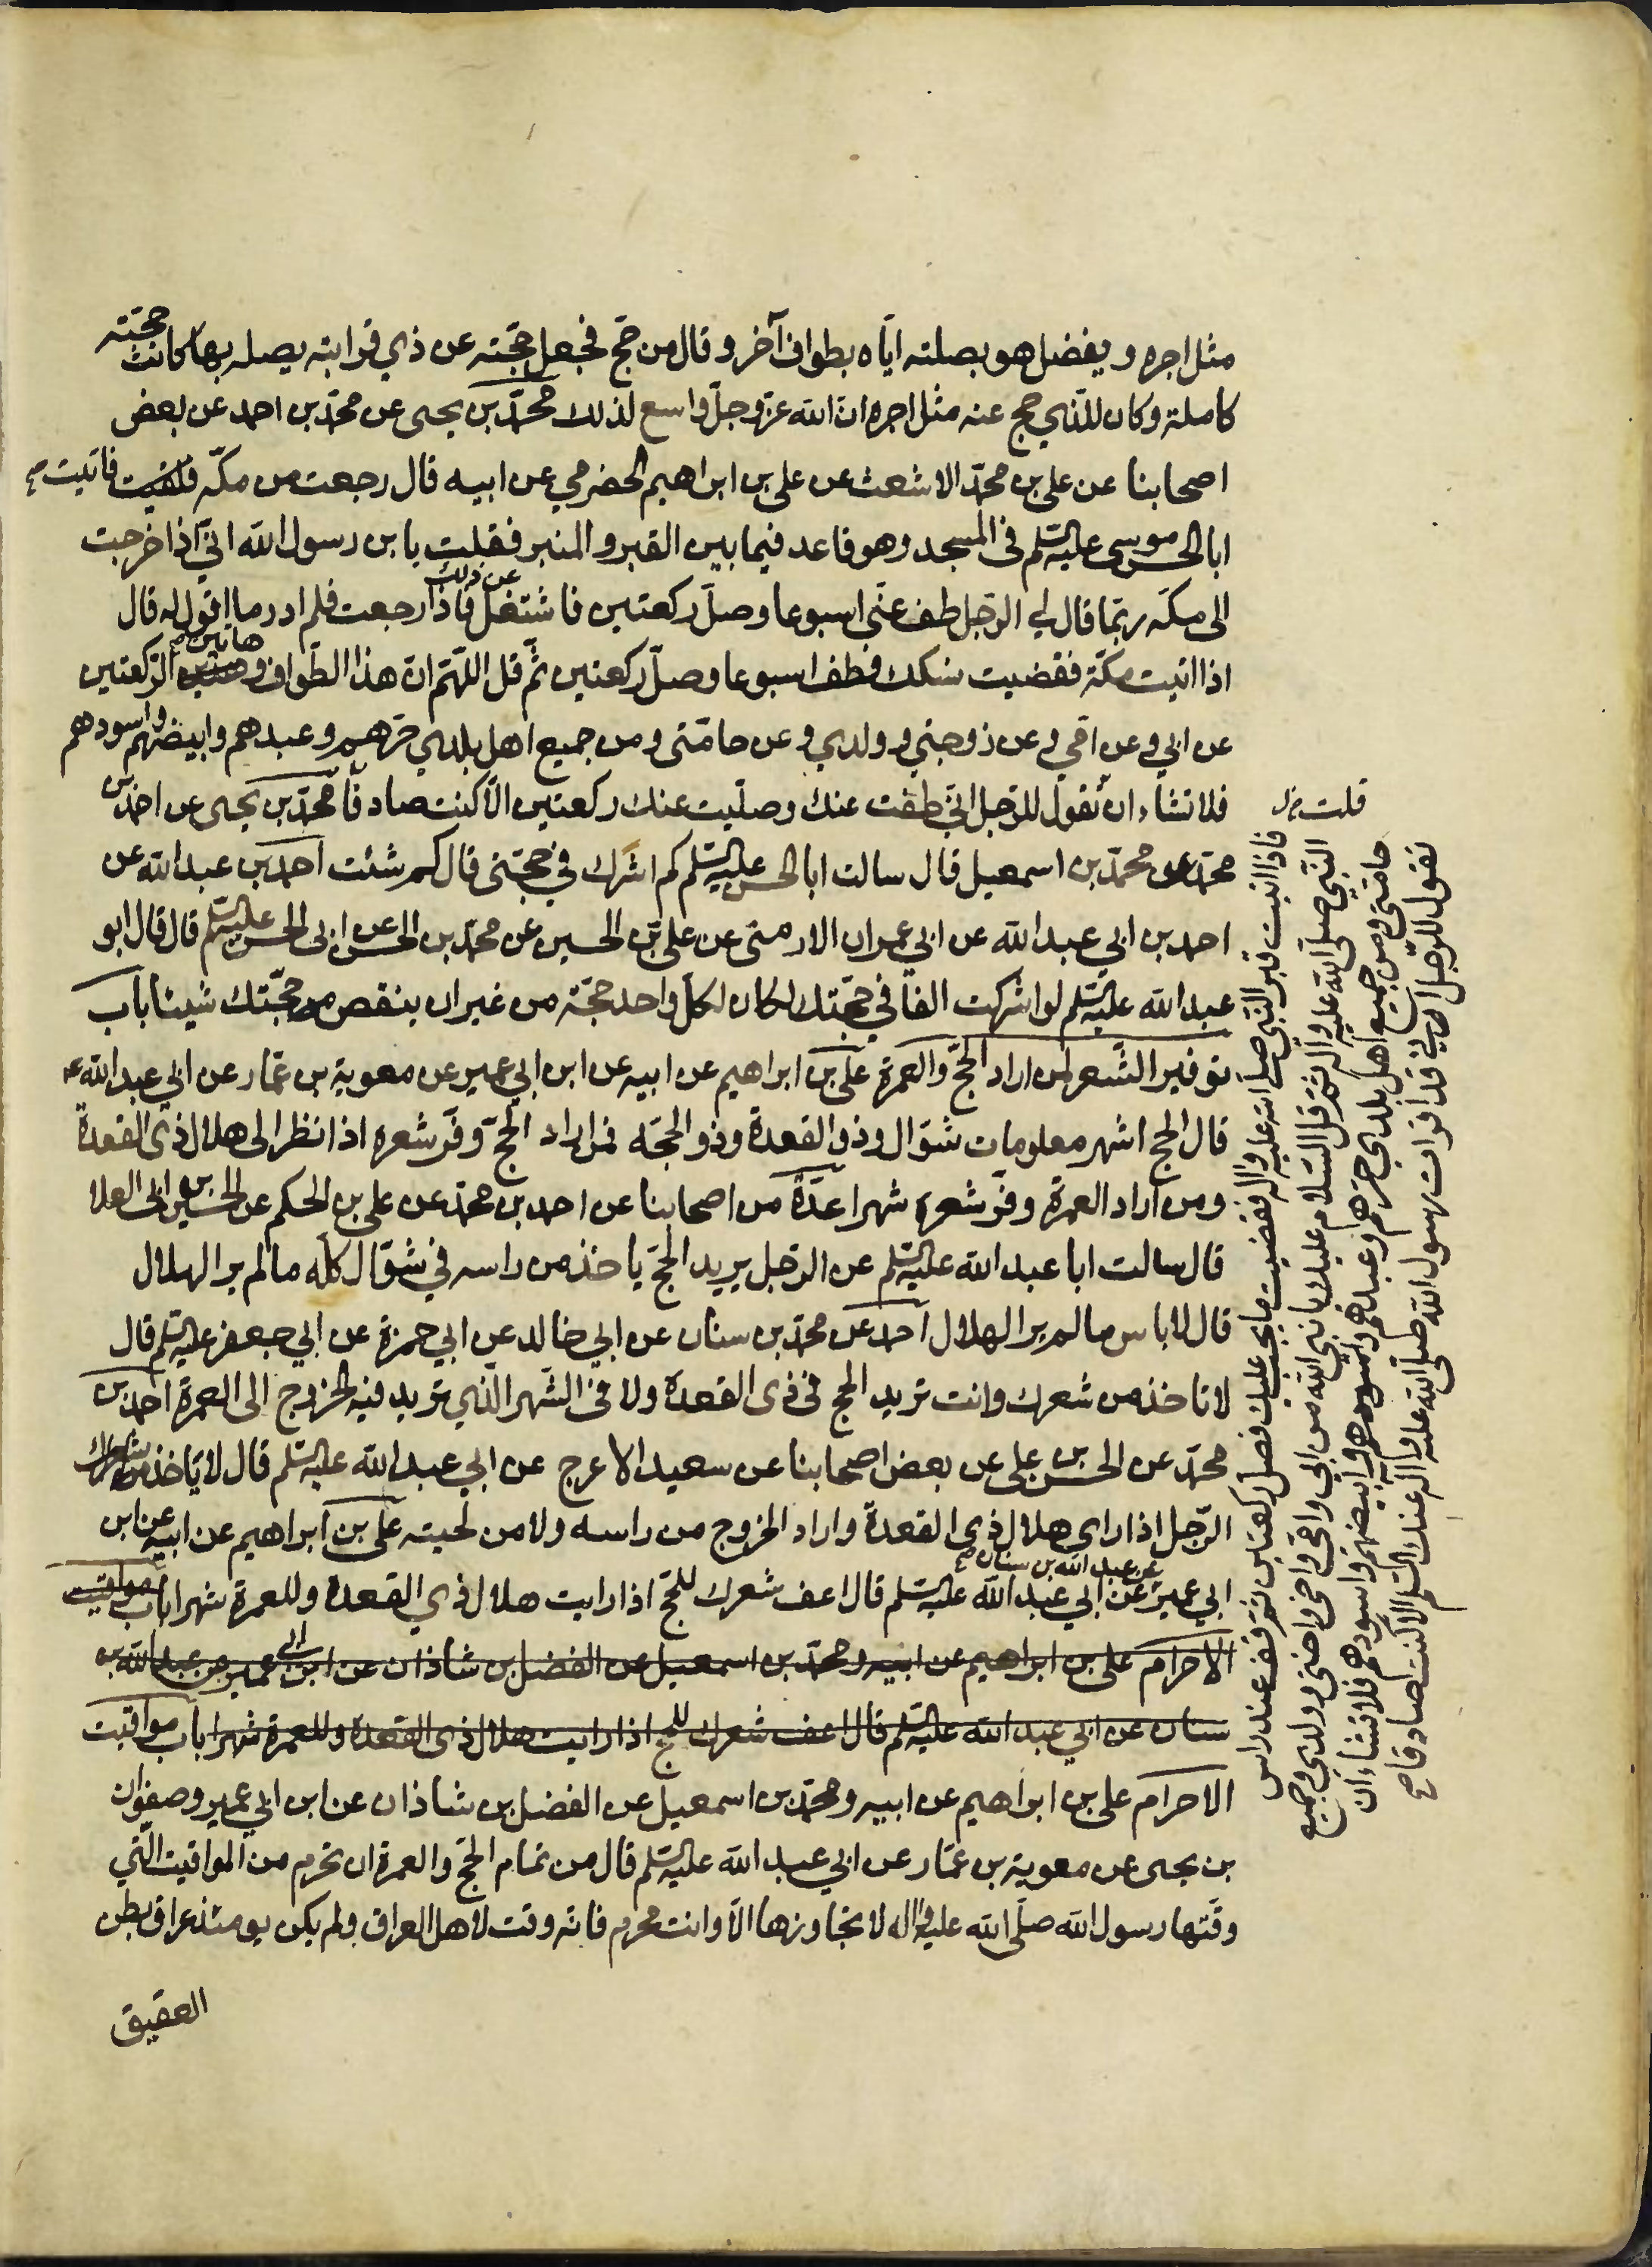 مثل اجره ويفضل هو بصلته ايّاه بطواف آخر وقال من حجّ فجعل حجّته عن ذي قرابته يصله بها كانت حجّته
كاملة وكان للّذي حج عنه مثل اجره انّ الله عزّ وجلّ واسع لذلك محمّد بن يحيى عن محمّد بن احمد عن بعض
اصحابنا عن علي بن محمّد الاشعث عن علي بن ابراهيم الحضرمي عن ابيه قال رجعت من مكّة فلقيت فاتيت
ابا الحسن موسى عليه السّلم في المسجد وهو قاعد فيما بين القبر والمنبر فقلت يا بن رسول الله انّي اذا خرجت
الى مكّة ربّما قال لي الرّجل طف عنّي اسبوعا وصلّ ركعتين فاشتغل عن ذلك فاذا رجعت فلم ادر ما اقول له قال
اذا اتيت مكّة فقضيت نسكك فطف اسبوعا وصلّ ركعتين ثمّ قل اللّهمّ انّ هذا الطّواف وهاتين الرّكعتين
عن ابي وعن امّي وعن زوجتي وولدي وعن حامّتي ومن جميع اهل بلدي حرّهم وعبدهم وابيضهم واسودهم
فلا تشاء ان تقول للرّجل انّي طفت عنك وصلّيت عنك ركعتين الّا كنت صادقا محمّد بن يحيى عن احمد بن
محمّد عن محمّد بن اسمعيل قال سالت ابا الحسن عليه السّلم كم اشرك في حجّتي قال كم شئت احمد بن عبد الله عن
احمد بن ابي عبد الله عن ابي عمران الارمني عن علي بن الحسين عن محمّد بن الحسن عن ابي الحسن عليه السّلم قال قال ابو
عبد الله عليه السّلم لو اشركت الفا في حجّتك لكان لكلّ واحد حجّة من غير ان ينقص من حجّتك شيئا باب
توفير الشّعر لمن اراد الحجّ والعمرة علي بن ابراهيم عن ابيه عن ابن ابي عمير عن معوية بن عمّار عن ابي عبد الله ع
قال الحج اشهر معلومات شوّال وذو القعدة وذو الحجّه فمن اراد الحجّ وفّر شعره اذا نظر الى هلال ذي القعدة
ومن اراد العمرة وفّر شعره شهرا عدّة من اصحابنا عن احمد بن محمّد عن علي بن الحكم عن الحسين بن ابى العلا
قال سالت ابا عبد الله عليه السّلم عن الرّجل يريد الحجّ ياخذ من راسه في شوّال كلّه ما لم ير الهلال
قال لا باس ما لم ير الهلال احمد عن محمّد بن سنان عن ابي خالد عن ابي حمزة عن ابي جعفر عليه السّلم قال
لا تاخذ من شعرك وانت تريد الحج في ذي القعدة ولا في الشّهر الّذي تريد فيه الخروج الى العمرة احمد بن
محمّد عن الحسن بن علي عن بعض اصحابنا عن سعيد الاعرج عن ابي عبد الله عليه السّلم قال لا ياخذ
الرّجل اذا راى هلال ذي القعدة واراد الخروج من راسه ولا من لحيته علي بن ابراهيم عن ابيه عن ابن
ابي عمير عن عبد الله بن سنان عن ابي عبد الله عليه السّلم قال اعف شعرك للحجّ اذا رايت هلال ذي القعدة وللعمرة شهرا باب مواقيت
الاحرام علي بن ابراهيم عن ابيه ومحمّد بن اسمعيل عن الفضل بن شاذان عن ابن ابي عمير عن عبد الله بن
سنان عن ابي عبد الله عليه السّلم قال اعف شعرك للحج اذا رايت هلال ذي القعدة وللعمرة شهرا باب مواقيت
الاحرام علي بن ابراهيم عن ابيه ومحمّد بن اسمعيل عن الفضل بن شاذان عن ابن ابي عمير وصفوان
بن يحيى عن معوية بن عمّار عن ابي عبد الله عليه السّلم قال من تمام الحجّ والعمرة ان تحرم من المواقيت الّتي
وقّتها رسول الله صلّى الله عليه واله لا تجاوزها الّا وانت محرم فانّه وقت لاهل العراق ولم يكن يومئذ عراق بطن
العقيق
قلت
فاذا اتيت قبر النّبي صلّى الله عليه واله فقضيت ما يجب عليك فصلّ ركعتين ثم قف عند راس
النّبي صلّى الله عليه واله ثمّ قل السّلام عليك يا نبي الله من ابي وامّي واخي واختي وولدي وجميع
حامّتي ومن جميع اهل بلدي حرّهم وعبدهم وابيضهم واسودهم فلا تشاء ان
تقول للرّجل انّي قد اقرات رسول الله صلّى الله عليه واله عنك السّلم الّا كنت صادقا